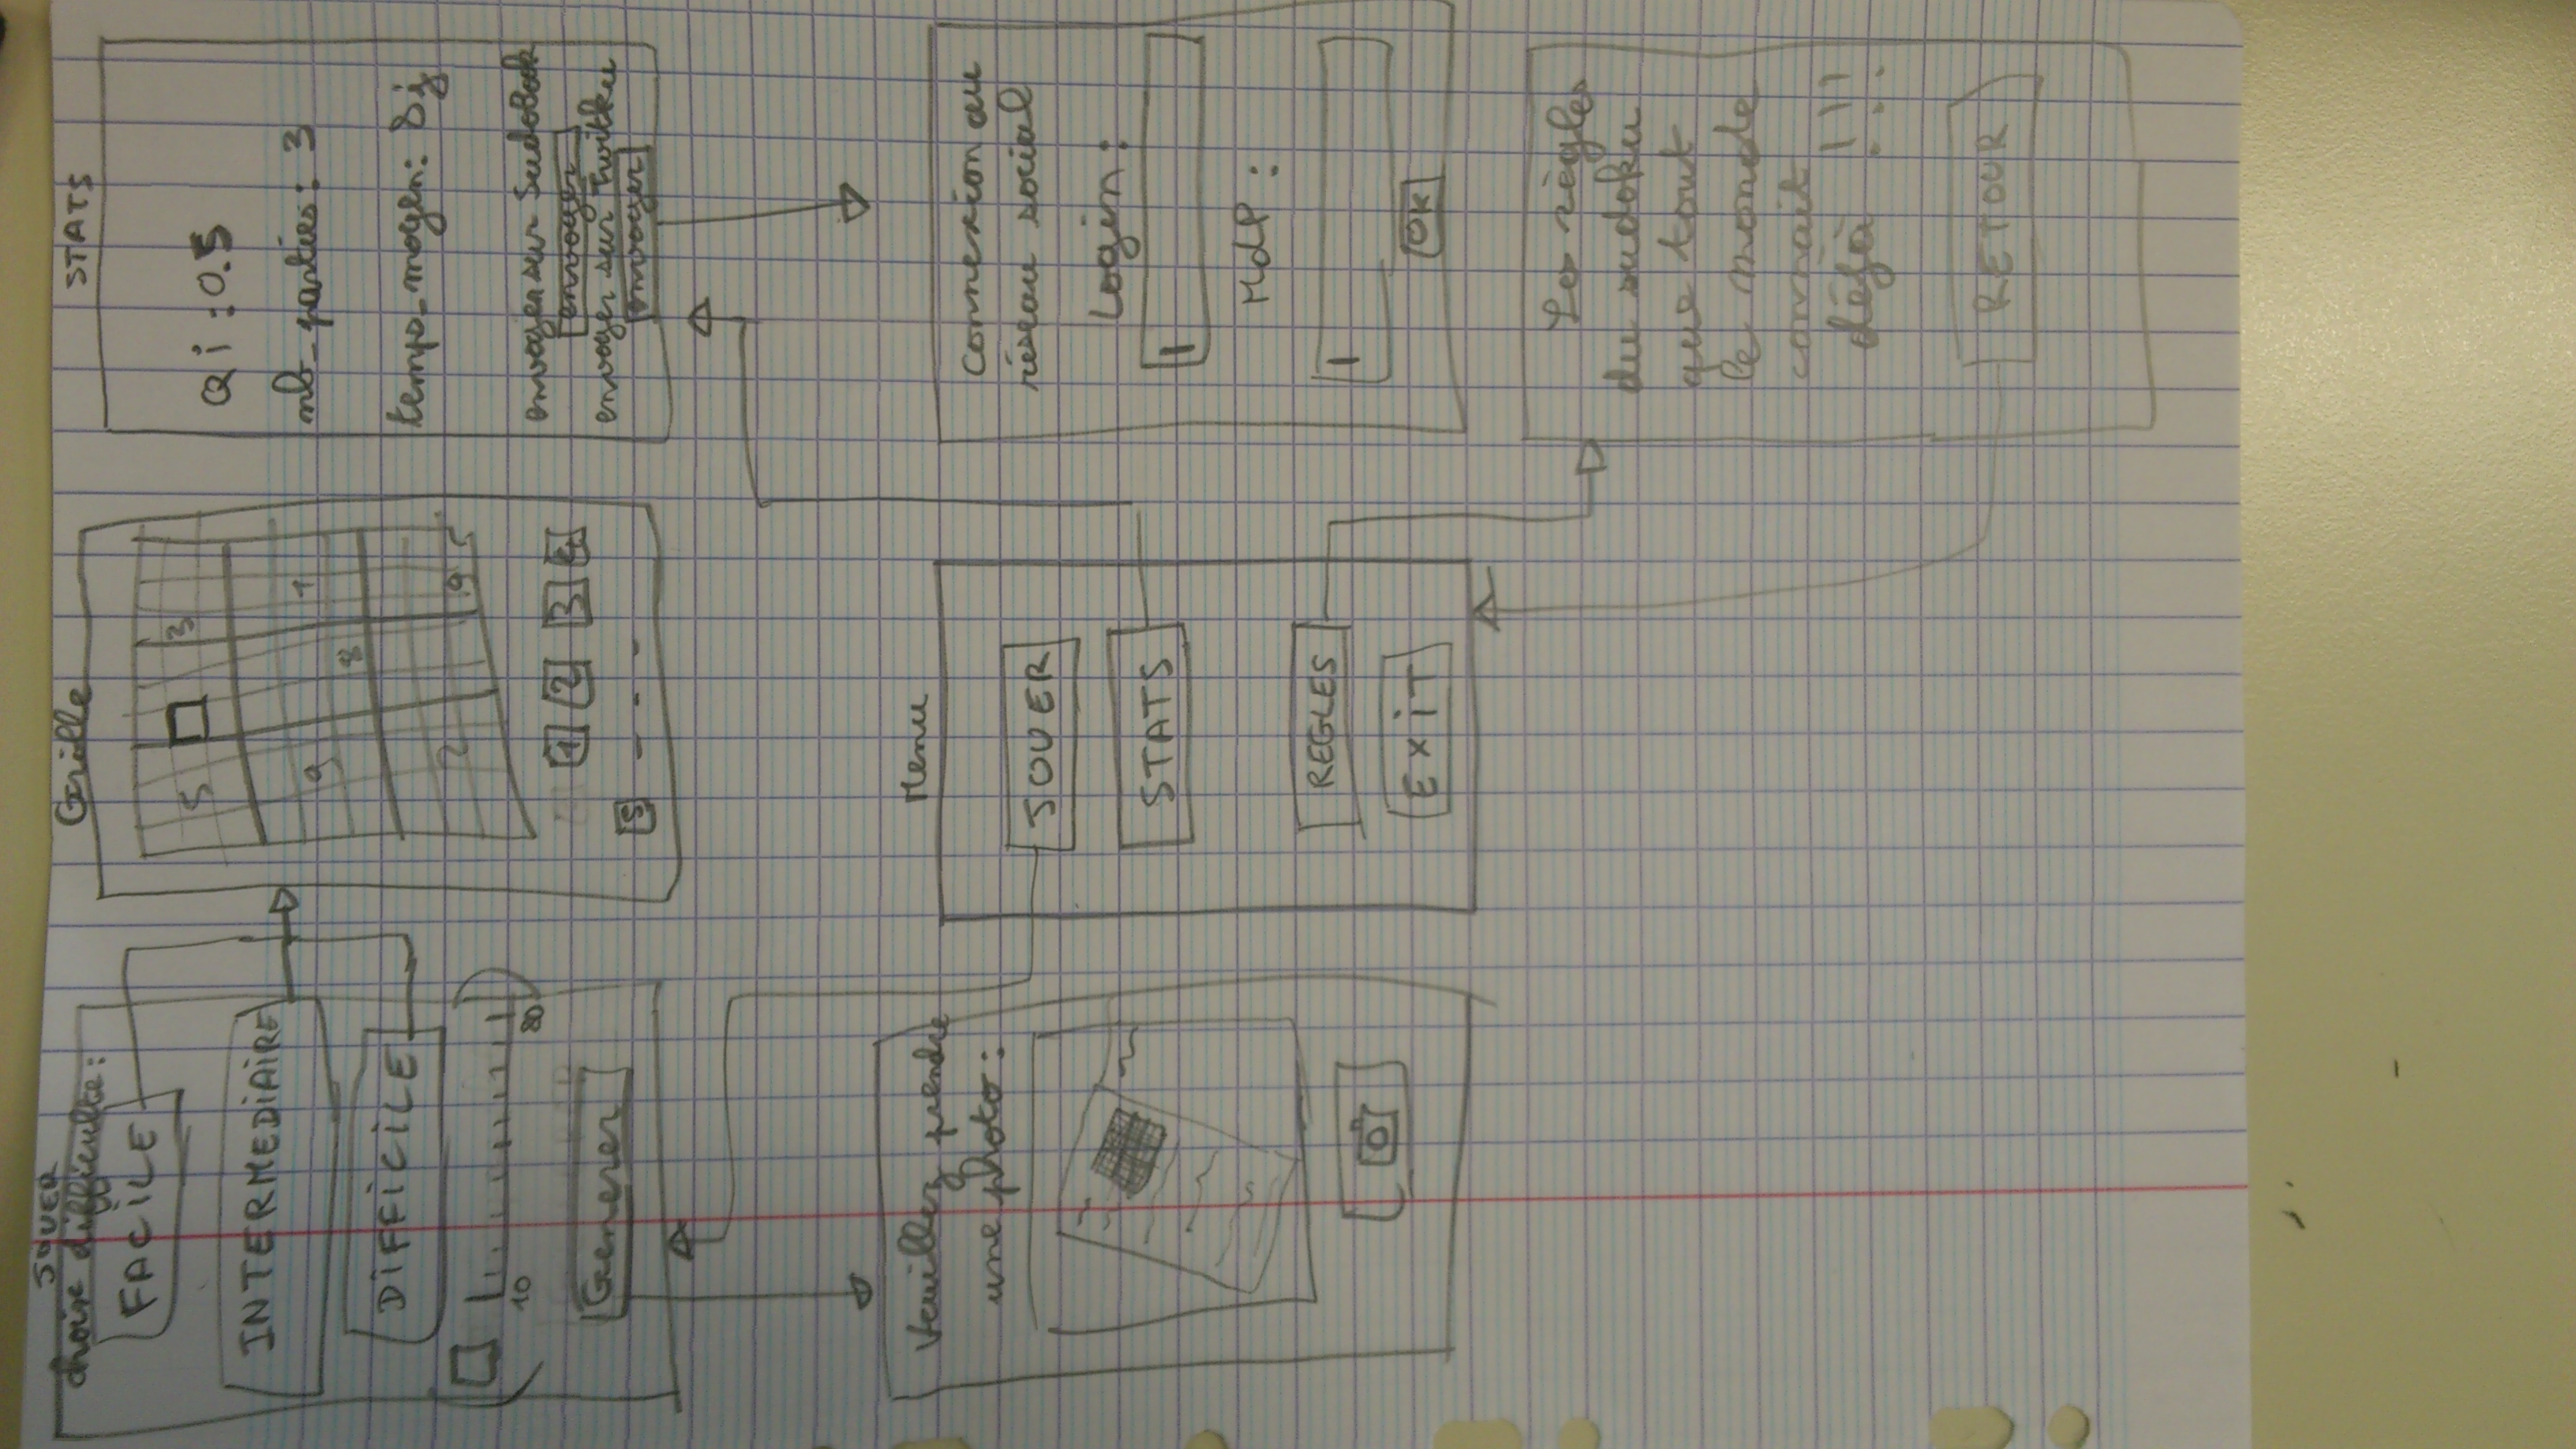 JOUER
choix difficulte:
FACILE
INTERMEDIAIRE
DIFFICILE
10 80
Generer
Grille
5 3
9 1
8
2 9 5
1 2 3 4
5 - - -
STATS
Qi : 0.5
nb_parties: 3
temps_moyen: 8j
envoyer sur SudoBook
envoyer
envoyer sur Twitku
envoyer
Veuillez prendre
une photo:
Menu
JOUER
STATS
REGLES
EXiT
Connexion au
réseau social
Login:
MdP :
OK
Les règles
du sudoku
que tout
le monde
connait
déjà !!!
RETOUR